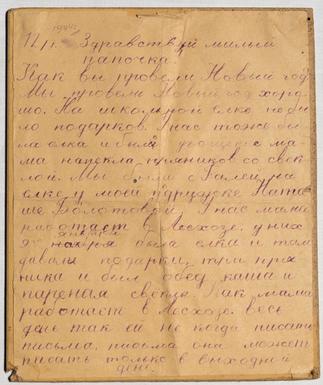 1944г
12/I. Здравствуй милый
папочка
Как вы провели Новый год
Мы провели Новый год хоро-
шо. На школьной елке не бы-
ло подарков. У нас тоже бы-
ла елка и были гости ма-
ма напекла пряников со свек-
лой. Мы были с Галей на
елке у моей подружке Ната-
ше Болотовой. У нас мама
работает в Лесхозе, у них
января была елка и там
давали подарки, три пря
ника и был обед каша и
пареная свекла. Как мама
работает в Лесхозе весь
день так ей не когда писать
письма, письма она может
писать только в выходной
день.